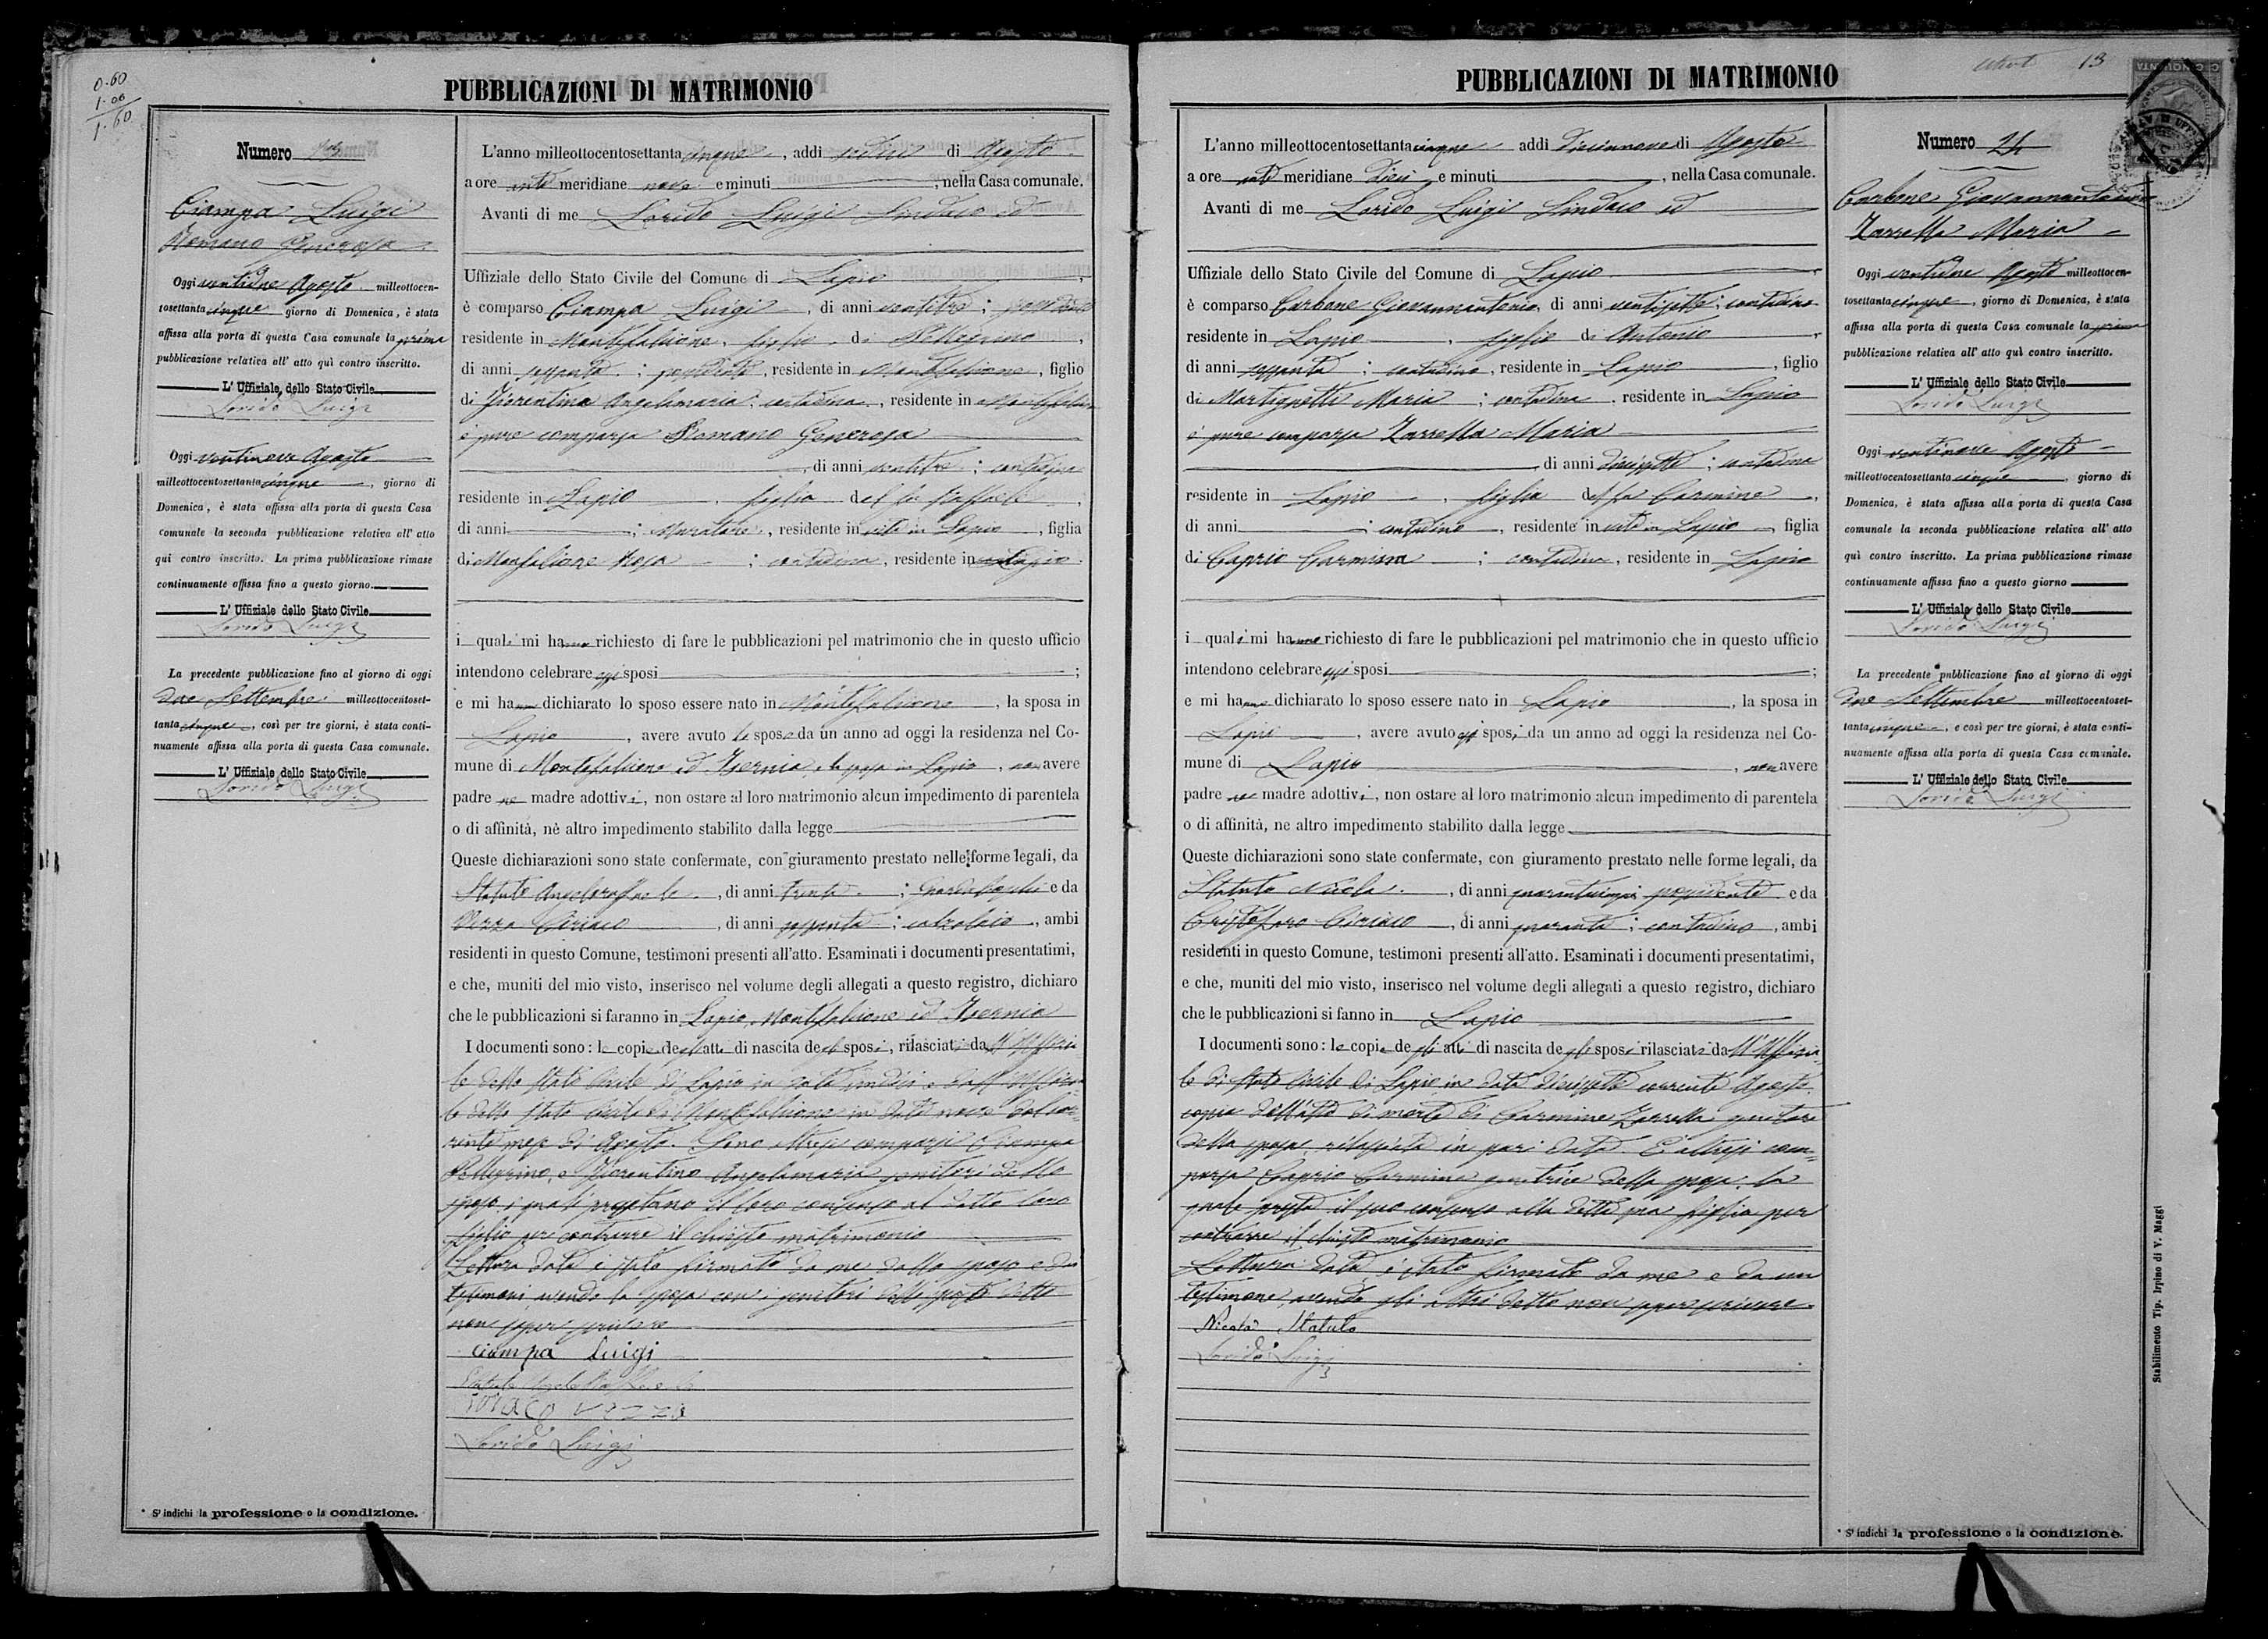 0.60
1.00
1.60
PUBBLICAZIONI DI MATRIMONIO
Numero
Ciampa Luigi
Romano Generosa
Oggi ventidue Agosto milleottocen-
tosettanta cinque giorno di Domenica, è stata
affissa alla porta di questa Casa comunale la prima
pubblicazione relativa all' atto quì contro inscritto.
L' Uffiziale dello Stato Civile
Lorido Luigi
Oggi ventinove Agosto
milleottocentosettanta cinque, giorno di
Domenica, è stata affissa alla porta di questa Casa
comunale la seconda pubblicazione relativa all' atto
qui contro inscritto. La prima pubblicazione rimase
continuamente affissa fino a questo giorno.
L' Uffiziale dello Stato Civile
Lorido Luigi
La precedente pubblicazione fino al giorno di oggi
due Settembre milleottocentoset-
tanta cinque, così per tre giorni, è stata conti-
nuamente affissa alla porta di questa Casa comunale.
L' Uffiziale dello Stato Civile
Lorido Luigi
* S' indichi la professione o la condizione.
L'anno milleottocentosettanta cinque, addi sedici di Agosto
a ore anti meridiane nove e minuti , nella Casa comunale.
Avanti di me Lorido Luigi Sindaco ed
Uffiziale dello Stato Civile del Comune di Lapio,
è comparso Ciampa Luigi, di anni ventitre; possidente
residente in Montefalcione, figlio di Pellegrino,
di anni sessanta; possidente, residente in Montefalcione, figlio
di Fiorentino Angelamaria; contadina, residente in Montefalcione
è pure comparsa Romano Generosa
, di anni ventitre; contadina
residente in Lapio, figlia del fu Raffaele,
di anni ; Muratore, residente in vita in Lapio, figlia
di Monfalcone Rosa; contadina, residente in Lapio
i quali mi hanno richiesto di fare le pubblicazioni pel matrimonio che in questo ufficio
intendono celebrare essi sposi ;
e mi hanno dichiarato lo sposo essere nato in Montefalcione, la sposa in
Lapio, avere avuto lo sposo da un anno ad oggi la residenza nel Co-
mune di Montefalcione ed Isernia, la sposa in Lapio, non avere
padre ne madre adottivi, non ostare al loro matrimonio alcun impedimento di parentela
o di affinità, nè altro impedimento stabilito dalla legge
Queste dichiarazioni sono state confermate, con giuramento prestato nelle forme legali, da
Statuto Angeloraffaele, di anni trenta; e da
Vozza Ciriaco, di anni sessanta; calzolaio, ambi
residenti in questo Comune, testimoni presenti all'atto. Esaminati i documenti presentatimi,
e che, muniti del mio visto, inserisco nel volume degli allegati a questo registro, dichiaro
che le pubblicazioni si faranno in Lapio, Montefalcione ed Isernia
I documenti sono: le copie degli atti di nascita degli sposi, rilasciati da Ll' Uffizia
le dello Stato Civile di Lapio in data undici e dall' Uffizia
le dello Stato Civile di Montefalcione in data nove del cor-
rente mese di Agosto. Sono altresì comparsi Ciampa
Pellegrino, e Fiorentino Angelamaria genitori dello
sposo, i quali prestano il loro consenso al detto loro
figlio per contrarre il chiesto matrimonio
Lettura data è stato firmato da me dallo sposo e da
testimoni, avendo la sposa con i genitori dello sposo detto
non saper scrivere
Ciampa Luigi
Statuto Angeloraffaele
Ciriaco Vozza
Lorido Luigi
PUBBLICAZIONI DI MATRIMONIO
13
L'anno milleottocentosettanta cinque addi diciannove di Agosto
a ore anti meridiane dieci e minuti , nella Casa comunale.
Avanti di me Lorido Luigi Sindaco ed
Uffiziale dello Stato Civile del Comune di Lapio,
è comparso Carbone Giovannantonio, di anni ventisette; contadino
residente in Lapio, figlio di Antonio,
di anni sessanta; contadino, residente in Lapio, figlio
di Martignetti Maria; contadina, residente in Lapio
è pure comparsa Zarrella Maria
di anni diciassette; contadina
residente in Lapio, figlia del fu Carmine,
di anni ; contadino, residente in vita in Lapio, figlia
di Caprio Carmina; contadina, residente in Lapio
i quali mi hanno richiesto di fare le pubblicazioni pel matrimonio che in questo ufficio
intendono celebrare essi sposi ;
e mi hanno dichiarato lo sposo essere nato in Lapio, la sposa in
Lapio, avere avuto essi sposi da un anno ad oggi la residenza nel Co-
mune di Lapio, non avere
padre ne madre adottivi, non ostare al loro matrimonio alcun impedimento di parentela
o di affinità, ne altro impedimento stabilito dalla legge
Queste dichiarazioni sono state confermate, con giuramento prestato nelle forme legali, da
Statuto Nicola, di anni quarantacinque possidente e da
Cristofaro Ciriaco, di anni quaranta; contadino, ambi
residenti in questo Comune, testimoni presenti all'atto. Esaminati i documenti presentatimi,
e che, muniti del mio visto, inserisco nel volume degli allegati a questo registro, dichiaro
che le pubblicazioni si fanno in Lapio
I documenti sono: le copie degli atti di nascita degli sposi rilasciate da Ll' Uffizia-
le di Stato Civile di Lapio in data diciassette corrente Agosto
copia dell'atto di morte di Carmine Zarrella genitore
della sposa, rilasciata in pari data. È altresì com-
parsa Caprio Carmina genitrice della sposa, la
quale presta il suo consenso alla detta sua figlia per
contrarre il chiesto matrimonio
Lettura data, è stato firmato da me e da un
testimone, avendo gli altri detto non saper scrivere.
Nicola Statuto
Lorido Luigi
Numero 24
Carbone Giovannantonio
Zarrella Maria
Oggi ventidue Agosto milleottocen-
tosettanta cinque, giorno di Domenica, è stata
affissa alla porta di questa Casa comunale la prima
pubblicazione relativa all' atto quì contro inscritto.
L' Uffiziale dello Stato Civile
Lorido Luigi
Oggi ventinove Agosto
milleottocentosettanta cinque, giorno di
Domenica, è stata affissa alla porta di questa Casa
comunale la seconda pubblicazione relativa all' atto
quì contro inscritto. La prima pubblicazione rimase
continuamente affissa fino a questo giorno
L' Uffiziale dello Stato Civile
Lorido Luigi
La precedente pubblicazione fino al giorno di oggi
due Settembre milleottocentoset-
tanta cinque, e così per tre giorni, è stata conti-
nuamente affissa alla porta di questa Casa comunale.
L' Uffiziale dello Stato Civile
Lorido Luigi
* S' indichi la professione o la condizione.
Stabilimento Tip. Irpino di V. Maggi